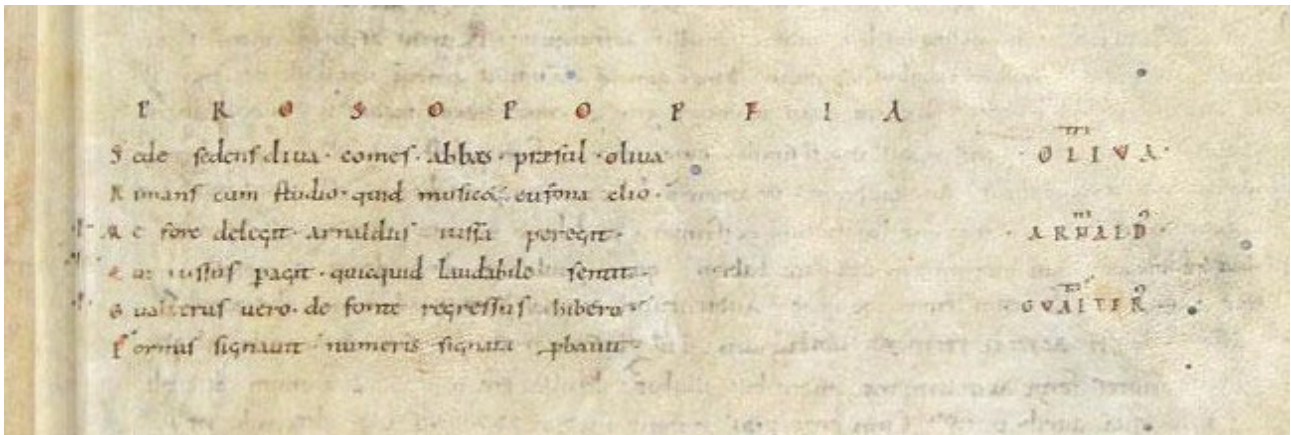 P R O S O P O P E I A
Sede sedens diua· comes· abbas· presul· oliua OLIVA·
Rimans cum studio· quid musicę eufona clio·
Re fore delegit· arnaldus iussa peregit· ARNALD
iussus pagit· quicquid laudabile sentit·
Gualterus uero· de fonte regressus hibero· GVALTER
signauit numeris signata